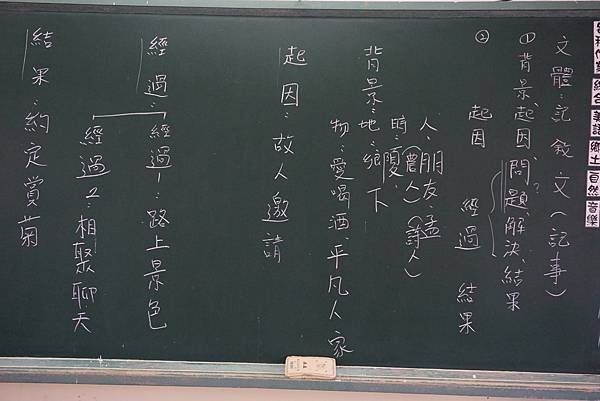 文體:記敘文(記事)
①背景、起因、問題、解決、結果
?
② 起因 經過 結果
人:朋友、孟
(農人)(詩人)
時:夏
背景:地:鄉下
物:愛喝酒平凡人家
起因:故人邀請
經過:經過1:路上景色
經過2:相聚聊天
結果:約定賞菊
綜合
美語
鄉土
自然
音樂